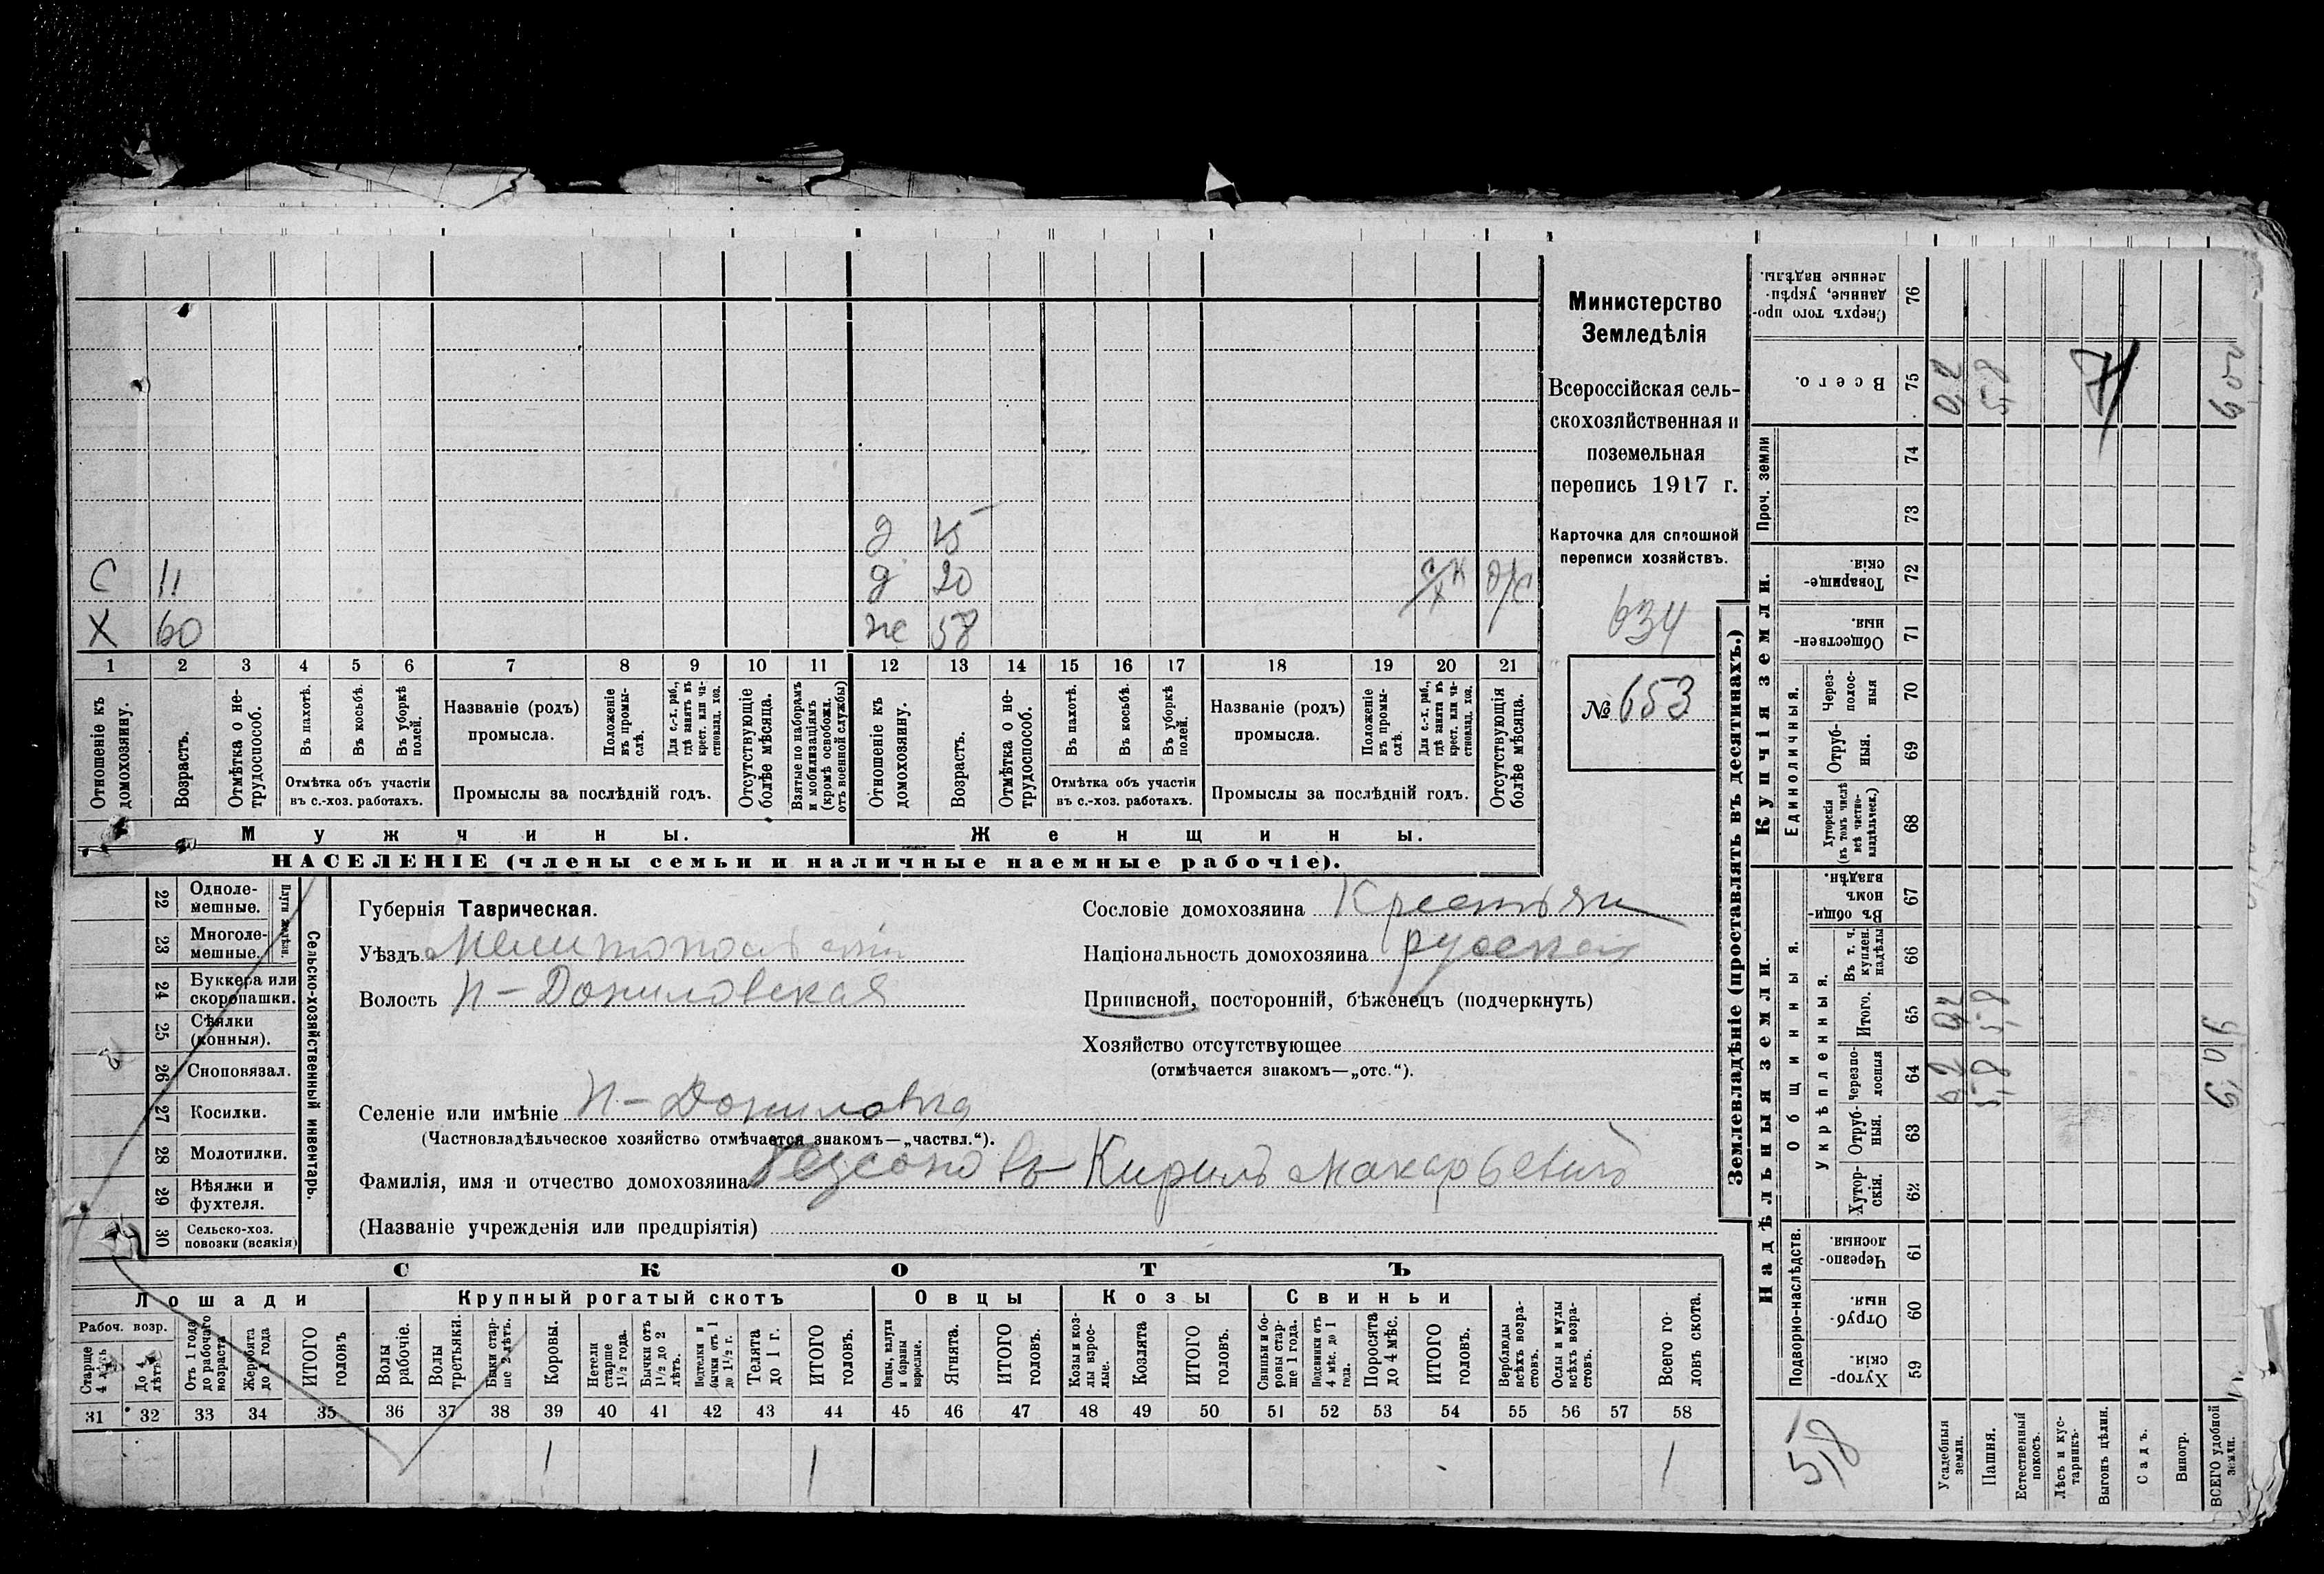 д 15
С 11 д 20 с/х К о/с
Х 60 же 58
1 2 3 4 5 6 7 8 9 10 11 12 13 14 15 16 17 18 19 20 21
Отношеніе къ домохозяину.
Возрастъ.
Отмѣтка о не-
трудоспособ.
Въ пахотѣ.
Въ косьбѣ.
Въ уборкѣ
полей.
Отмѣтка объ участіи
въ с.-хоз. работахъ.
Названіе (родъ)
промысла.
Положеніе
въ промы-
слѣ.
Для с.-х. раб.,
гдѣ занятъ въ
крест. или ча-
стновлад. хоз.
Промыслы за послѣдній годъ.
Отсутствующіе
болѣе мѣсяца.
Взятые по наборамъ
и мобилизаціямъ
(кромѣ освобожд.
отъ военной службы)
Отношеніе къ
домохозяину.
Возрастъ.
Отмѣтка о не-
трудоспособ.
Въ пахотѣ.
Въ косьбѣ.
Въ уборкѣ
полей.
Отмѣтка объ участіи
въ с.-хоз. работахъ.
Названіе (родъ)
промысла.
Положеніе
въ промы-
слѣ.
Для с.-х. раб.,
гдѣ занята въ
крест. или ча-
стновлад. хоз.
Промыслы за послѣдній годъ.
Отсутствующія
болѣе мѣсяца.
Мужчины. Женщины.
НАСЕЛЕНІЕ (члены семьи и наличные наемные рабочіе).
Министерство
Земледѣлія
Всероссійская сель-
скохозяйственная и
поземельная
перепись 1917 г.
Карточка для сплошной
переписи хозяйствъ.
634
№ 653
22 Одноле-
мешные.
23 Многоле-
мешные.
24 Буккера или
скоропашки.
25 Сѣялки
(конныя).
26 Сноповязал.
27 Косилки.
28 Молотилки.
29 Вѣялки и
фухтеля.
30 Сельско-хоз.
повозки (всякія)
Сельско-хозяйственный инвентарь.
Губернія Таврическая.
Уѣздъ Мелитопольскій
Волость Н-Даниловская
Селеніе или имѣніе Н-Даниловка
(Частновладѣльческое хозяйство отмѣчается знакомъ—„частвл.“).
Фамилія, имя и отчество домохозяина Безсоновъ Кирилъ Макарьевич
(Названіе учрежденія или предпріятія)
Сословіе домохозяина Крестьян
Національность домохозяина русская
Приписной, посторонній, бѣженецъ (подчеркнуть)
Хозяйство отсутствующее
(отмѣчается знакомъ—„отс.“).
СКОТЪ
Лошади Крупный рогатый скотъ Овцы Козы Свиньи
Рабоч. возр.
Старше
4 лѣтъ
До 4
лѣтъ
Отъ 1 года
до рабочаго
возраста
Жеребята
до 1 года
ИТОГО
головъ
Волы
рабочіе.
Волы
третьяки.
Быки стар-
ше 2 лѣтъ.
Коровы.
Нетели
старше
1½ года.
Бычки отъ
1½ до 2
лѣтъ.
Подтелки и
бычки отъ 1
до 1½ г.
Телята
до 1 г.
ИТОГО
головъ.
Овцы, валухи
и бараны
взрослые.
Ягнята.
ИТОГО
головъ.
Козы и коз-
лы взрос-
лые.
Козлята
ИТОГО
головъ.
Свиньи и бо-
ровы стар-
ше 1 года.
Подсвинки отъ
4 мѣс. до 1
года.
Поросята
до 4 мѣс.
ИТОГО
головъ.
Верблюды
всѣхъ возра-
стовъ.
Ослы и мулы
всѣхъ возра-
стовъ.
Всего го-
ловъ скота.
31 32 33 34 35 36 37 38 39 40 41 42 43 44 45 46 47 48 49 50 51 52 53 54 55 56 57 58
1 1 1
Землевладѣніе (проставлять въ десятинахъ.)
Надѣльныя земли. Купчія земли. Проч. земли
Подворно-наслѣдств.
Общинныя.
Укрѣпленныя.
Единоличныя.
Хутор-
скія
59
Отруб-
ныя.
60
Черезпо-
лосныя.
61
Хутор-
скія.
62
Отруб-
ныя.
63
Черезпо-
лосныя
64
Итого.
65
Въ т. ч.
куплен.
надѣлы
66
Въ общи-
номъ
владѣн.
67
Хуторскія
(въ томъ числѣ
всѣ частно-
владѣльческ.)
68
Отруб-
ныя.
69
Через-
полос-
ныя
70
Обществен-
ныя.
71
Товарище-
скія.
72
73
74
Всего.
75
Сверхъ того про-
данные, укрѣп-
ленные надѣлы.
76
5,8
Усадебныя
земли.
0,2 0,2 0,2
Пашня.
5,8 5,8 5,8
Естественный
покосъ.
Лѣсъ и кус-
тарникъ.
Выгонъ цѣлин.
Садъ.
Виногр.
ВСЕГО удобной
земли.